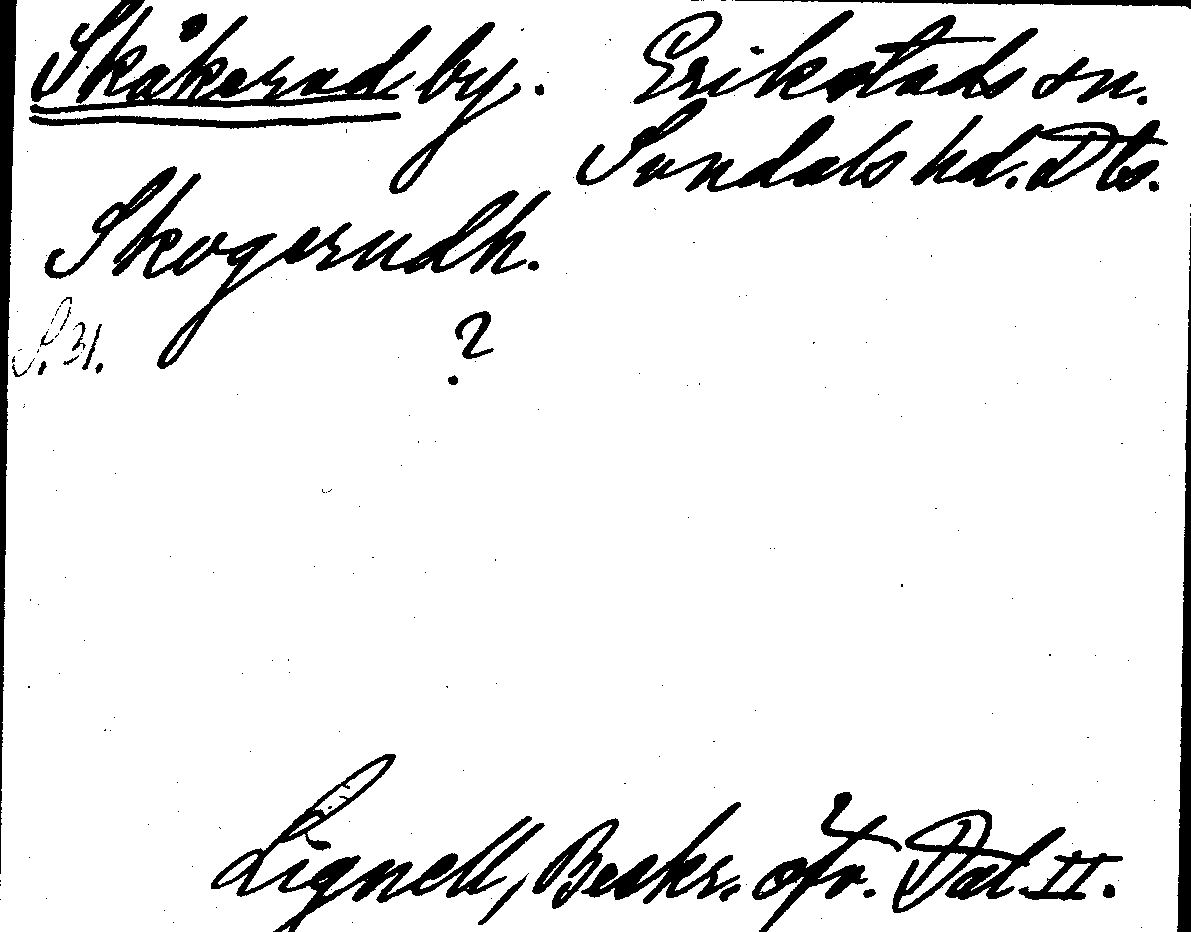 Skåkerud by. Erikstads sn.
Sundals hd. Dls.
Skogerudh.
S. 31. ?
Lignell, Beskr. öfv. Dal. II.